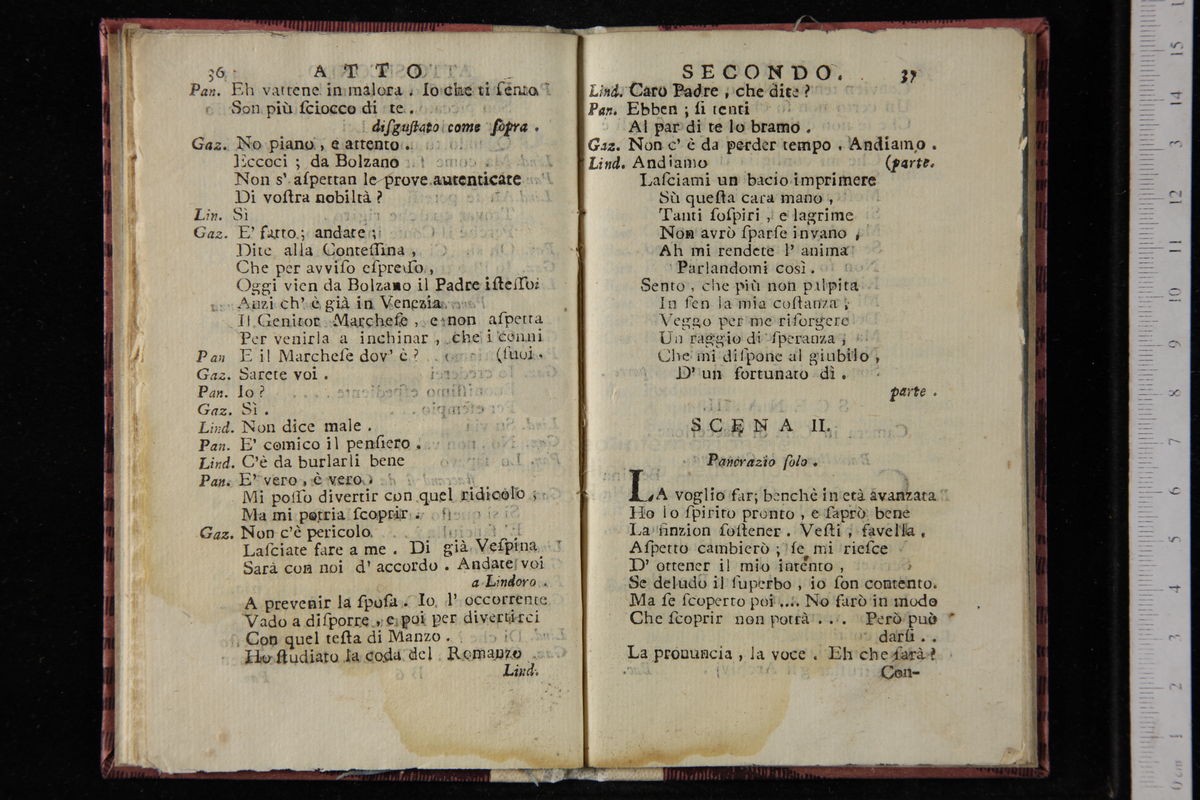 36 ATTO
Pan. Eh vattene in malora . Io che ti ſento
Son più ſciocco di te .
diſguſtato come ſopra .
Gaz. No piano , e attento .
Eccoci ; da Bolzano
Non s' aſpettan le prove autenticate
Di voſtra nobiltà ?
Lin. Sì
Gaz. E' fatto ; andate ;
Dite alla Conteſſina ,
Che per avviſo eſpreſſo ,
Oggi vien da Bolzano il Padre iſteſſo:
Anzi ch' è già in Venezia
Il Genitor Marcheſe , e non aſpetta
Per venirla a inchinar , che i cenni
Pan E il Marcheſe dov' è ? (ſuoi .
Gaz. Sarete voi .
Pan. Io ?
Gaz. Sì .
Lind. Non dice male .
Pan. E' comico il penſiero .
Lind. C'è da burlarli bene
Pan. E' vero , è vero .
Mi poſſo divertir con quel ridicolo ;
Ma mi potria ſcoprir .
Gaz. Non c'è pericolo
Laſciate fare a me . Di già Veſpina
Sarà con noi d' accordo . Andate voi
a Lindoro .
A prevenir la ſpoſa . Io l' occorrente
Vado a diſporre , e poi per divertirci
Con quel teſta di Manzo .
Ho ſtudiato la coda del Romanzo
Lind.
SECONDO. 37
Lind. Caro Padre , che dite ?
Pan. Ebben ; ſi tenti
Al par di te lo bramo .
Gaz. Non c' è da perder tempo . Andiamo .
Lind. Andiamo (parte.
Laſciami un bacio imprimere
Sù queſta cara mano ,
Tanti ſoſpiri , e lagrime
Non avrò ſparſe invano ,
Ah mi rendete l' anima
Parlandomi così .
Sento , che più non palpita
In ſen la mia coſtanza ,
Veggo per me riſorgere
Un raggio di ſperanza ,
Che mi diſpone al giubilo ,
D' un fortunato dì .
parte .
SCENA II.
Pancrazio ſolo .
LA voglio far; benchè in età avanzata
Ho lo ſpirito pronto , e ſaprò bene
La finzion ſoſtener . Veſti , favella ,
Aſpetto cambierò ; ſe mi rieſce
D' ottener il mio intento ,
Se deludo il ſuperbo , io ſon contento.
Ma ſe ſcoperto poi .... No farò in modo
Che ſcoprir non potrà . . . Però può
darſi . .
La pronuncia , la voce . Eh che ſarà ?
Con-